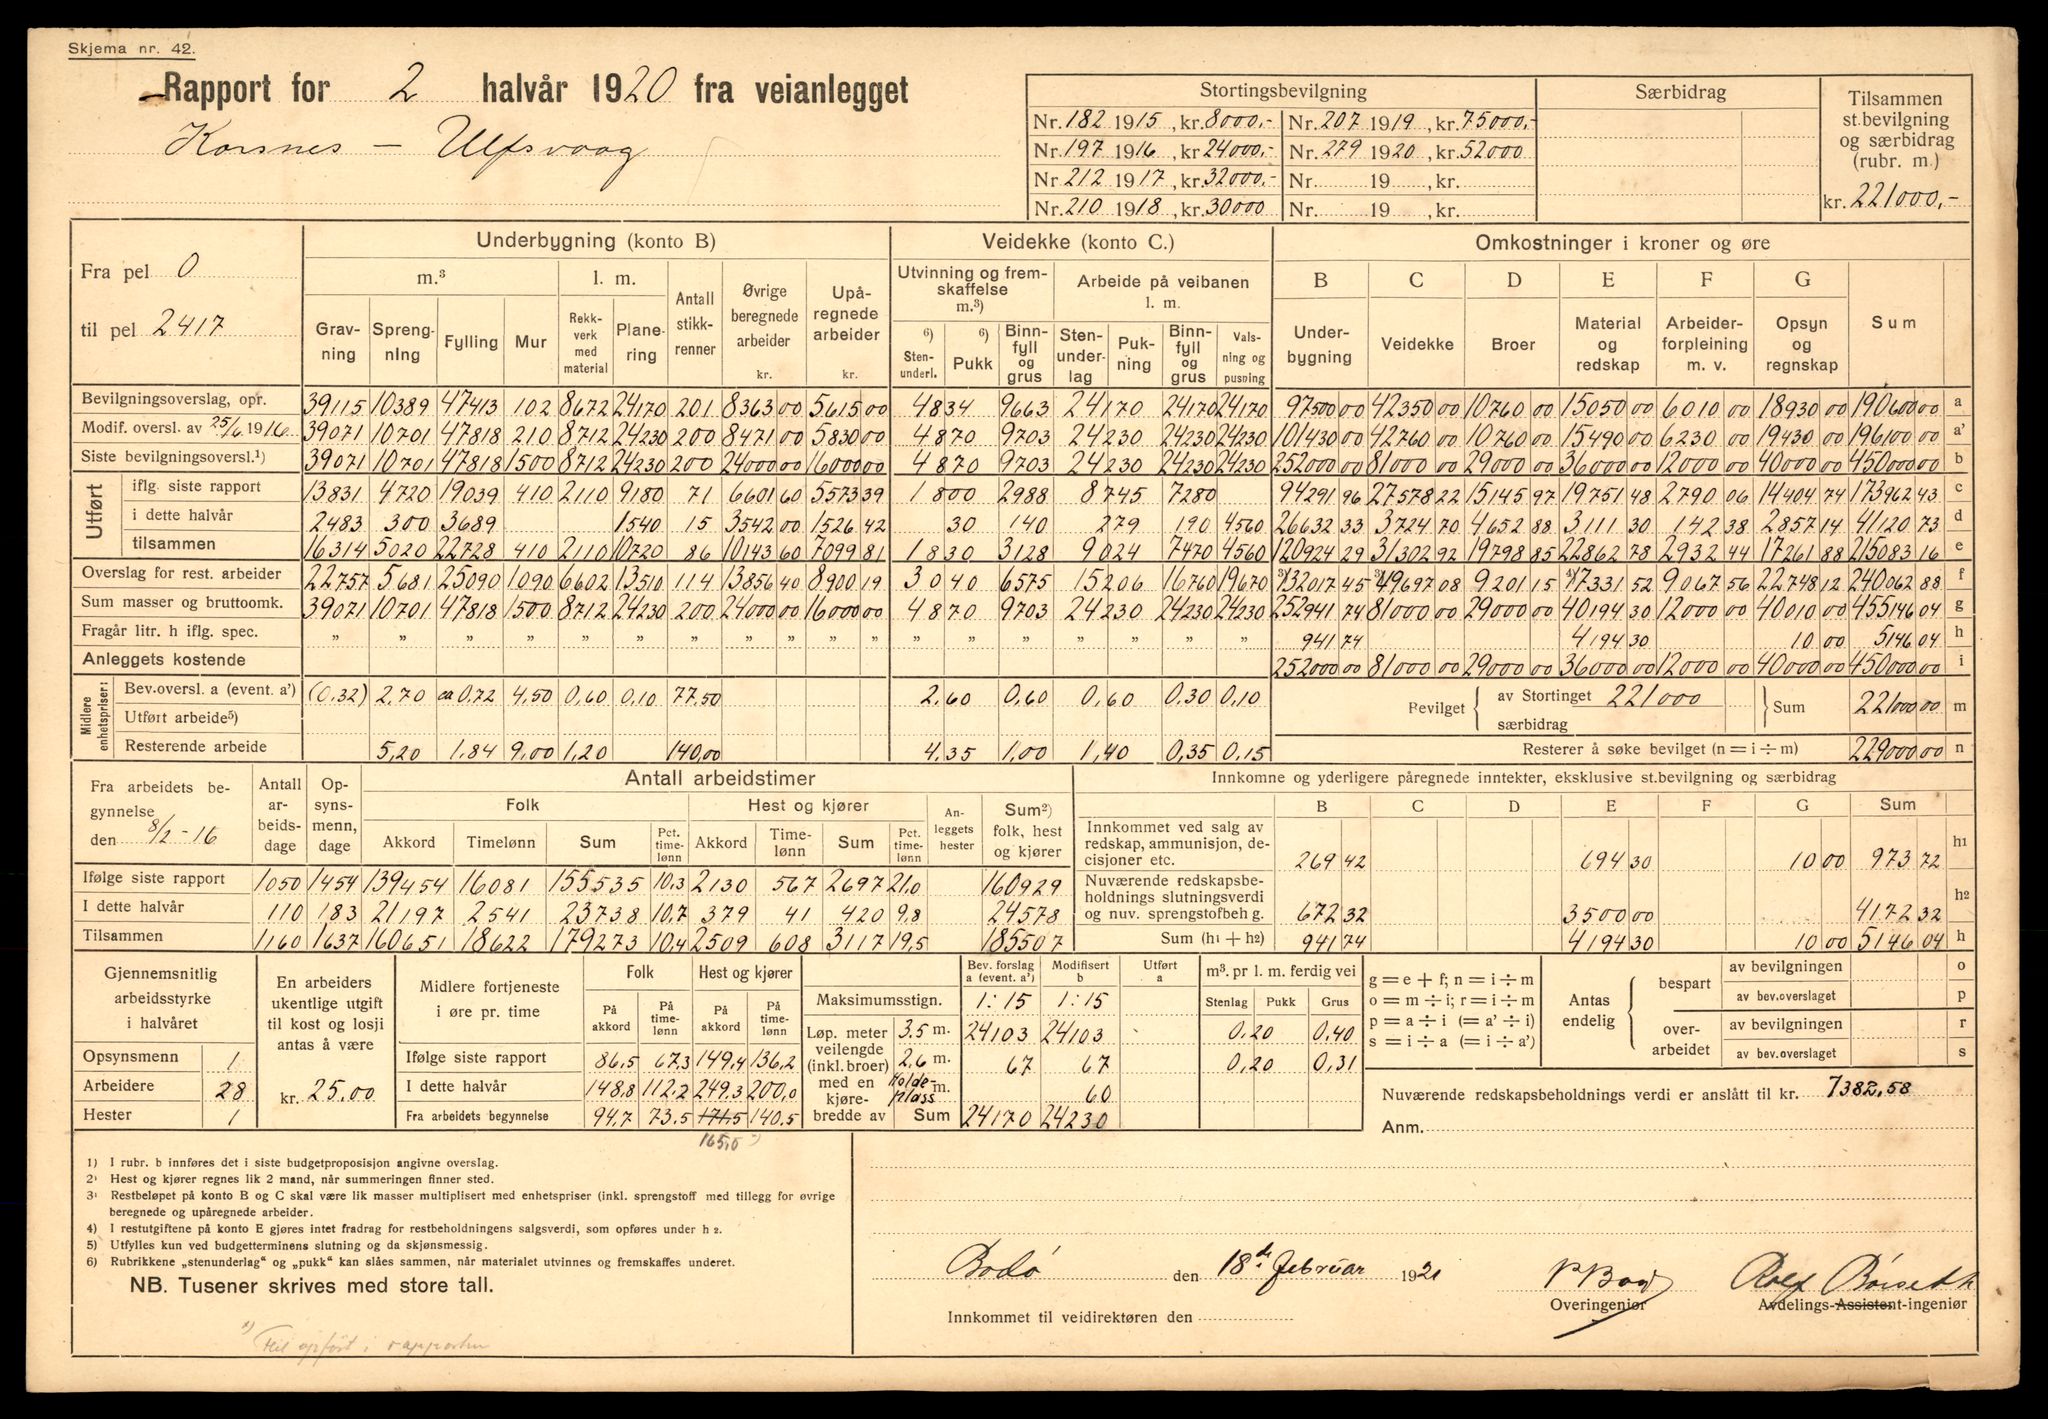 Skjema nr. 42.
Rapport for 2 halvår 1920 fra veianlegget
Korsnes – Ulfsvaag
Stortingsbevilgning
Særbidrag
Tilsammen st.bevilgning og særbidrag (rubr. m.)
Nr. 182 1915, kr. 8000,- Nr. 207 1919, kr. 75000,-
Nr. 197 1916, kr 24000,- Nr. 279 1920, kr. 52000
Nr. 212 1917, kr. 32000,- Nr. 19 , kr.
Nr. 210 1918, kr. 30000 Nr. 19 , kr.
kr. 221000,-
Fra pel 0
til pel 2417
Underbygning (konto B)
Veidekke (konto C.)
Omkostninger i kroner og øre
m.³ l. m. Antall stikkrenner Øvrige beregnede arbeider kr. Upåregnede arbeider kr.
Utvinning og fremskaffelse m.³) Arbeide på veibanen l. m.
B C D E F G
Gravning Sprengning Fylling Mur Rekkverk med material Planering
6) Stenunderl. 6) Pukk Binnfyll og grus Stenunderlag Pukning Binnfyll og grus Valsning og pusning
Underbygning Veidekke Broer Material og redskap Arbeiderforpleining m. v. Opsyn og regnskap Sum
Bevilgningsoverslag, opr. 39115 10389 47413 102 8672 24170 201 8363 00 5615 00 4834 9663 24170 24170 24170 97500 00 42350 00 10760 00 15050 00 6010 00 18930 00 190600 00 a
Modif. oversl. av 25/6 1916 39071 10701 47818 210 8712 24230 200 8471 00 5830 00 4870 9703 24230 24230 24230 101430 00 42760 00 10760 00 15490 00 6230 00 19430 00 196100 00 a'
Siste bevilgningsoversl.¹) 39071 10701 47818 1500 8712 24230 200 24000 00 16000 00 4870 9703 24230 24230 24230 252000 00 81000 00 29000 00 36000 00 12000 00 40000 00 450000 00 b
Utført
iflg. siste rapport 13831 4720 19039 410 2110 9180 71 6601 60 5573 39 1800 2988 8745 7280 94291 96 27578 22 15145 97 19751 48 2790 06 14404 74 173962 43 c
i dette halvår 2483 300 3689 1540 15 3542 00 1526 42 30 140 279 190 4560 26632 33 3724 70 4652 88 3111 30 142 38 2857 14 41120 73 d
tilsammen 16314 5020 22728 410 2110 10720 86 10143 60 7099 81 1830 3128 9024 7470 4560 120924 29 31302 92 19798 85 22862 78 2932 44 17261 88 215083 16 e
Overslag for rest. arbeider 22757 5681 25090 1090 6602 13510 114 13856 40 8900 19 3040 6575 15206 16760 19670 ³)132017 45 ³)49697 08 9201 15 ⁴)17331 52 9067 56 22748 12 240062 88 f
Sum masser og bruttoomk. 39071 10701 47818 1500 8712 24230 200 24000 00 16000 00 4870 9703 24230 24230 24230 252941 74 81000 00 29000 00 40194 30 12000 00 40010 00 455146 04 g
Fragår litr. h iflg. spec. „ „ „ „ „ „ „ „ „ „ „ „ „ „ „ „ „ 941 74 4194 30 10 00 5146 04 h
Anleggets kostende 252000 00 81000 00 29000 00 36000 00 12000 00 40000 00 450000 00 i
Midlere enhetspriser:
Bev.oversl. a (event. a') (0,32) 2,70 ca 0,72 4,50 0,60 0,10 77,50 2,60 0,60 0,60 0,30 0,10
Utført arbeide⁵)
Resterende arbeide 5,20 1,84 9,00 1,20 140,00 4,35 1,00 1,40 0,35 0,15
Bevilget { av Stortinget 221000 særbidrag } Sum 221000 00 m
Resterer å søke bevilget (n = i ÷ m) 229000 00 n
Fra arbeidets begynnelse den 8/2-16
Antall arbeidsdage
Opsynsmenn, dage
Antall arbeidstimer
Folk Hest og kjører Anleggets hester Sum²) folk, hest og kjører
Akkord Timelønn Sum Pct. timelønn Akkord Timelønn Sum Pct. timelønn
Ifølge siste rapport 1050 1454 139454 16081 155535 10,3 2130 567 2697 21,0 160929
I dette halvår 110 183 21197 2541 23738 10,7 379 41 420 9,8 24578
Tilsammen 1160 1637 160651 18622 179273 10,4 2509 608 3117 19,5 185507
Innkomne og yderligere påregnede inntekter, eksklusive st.bevilgning og særbidrag
B C D E F G Sum
Innkommet ved salg av redskap, ammunisjon, decisjoner etc. 269 42 694 30 10 00 973 72 h1
Nuværende redskapsbeholdnings slutningsverdi og nuv. sprengstofbehg. 672 32 3500 00 4172 32 h2
Sum (h1 + h2) 941 74 4194 30 10 00 5146 04 h
Gjennemsnitlig arbeidsstyrke i halvåret
Opsynsmenn 1
Arbeidere 28
Hester 1
En arbeiders ukentlige utgift til kost og losji antas å være
kr. 25,00
Midlere fortjeneste i øre pr. time
Folk Hest og kjører
På akkord På timelønn På akkord På timelønn
Ifølge siste rapport 86,5 67,3 149,4 136,2
I dette halvår 148,8 112,2 249,3 200,0
Fra arbeidets begynnelse 94,7 73,5 171,5 140,5
165,0 ×)
Bev. forslag a (event. a') Modifisert b Utført a
Maksimumsstign. 1:15 1:15
Løp. meter veilengde (inkl. broer) med en kjørebredde av
3,5 m. 24103 24103
2,6 m. 67 67
Holdeplass m. 60
Sum 24170 24230
m³. pr l. m. ferdig vei
Stenlag Pukk Grus
0,20 0,40
0,20 0,31
g = e + f; n = i ÷ m
o = m ÷ i; r = i ÷ m
p = a ÷ i (= a' ÷ i)
s = i ÷ a (= i ÷ a')
Antas endelig
bespart av bevilgningen o
av bev.overslaget p
overarbeidet av bevilgningen r
av bev.overslaget s
Nuværende redskapsbeholdnings verdi er anslått til kr. 7382,58
Anm.
1) I rubr. b innføres det i siste budgetproposisjon angivne overslag.
2) Hest og kjører regnes lik 2 mand, når summeringen finner sted.
3) Restbeløpet på konto B og C skal være lik masser multiplisert med enhetspriser (inkl. sprengstoff med tillegg for øvrige
beregnede og upåregnede arbeider.
4) I restutgiftene på konto E gjøres intet fradrag for restbeholdningens salgsverdi, som opføres under h 2.
5) Utfylles kun ved budgetterminens slutning og da skjønsmessig.
6) Rubrikkene „stenunderlag" og „pukk" kan slåes sammen, når materialet utvinnes og fremskaffes underet.
NB. Tusener skrives med store tall.
×) Feil opført i rapporten
Bodø den 18de februar 1921
Innkommet til veidirektøren den
Overingeniør
Rolf Børseth
Avdelings-Assistent-ingeniør